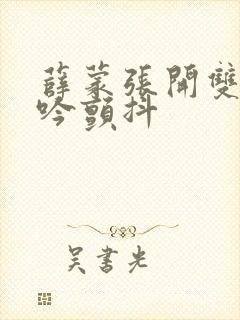 薛蒙張開雙
吟顫抖
吳書光